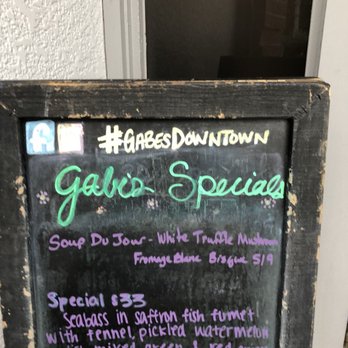 #GABESDOWNTOWN
Gabis Specials
Soup Du Jour - White Truffle Mushroom
Fromage Blanc Bisque 5/9
Special $33
Seabass in saffron fish fumet
with fennel, pickled watermelon
mixed green &